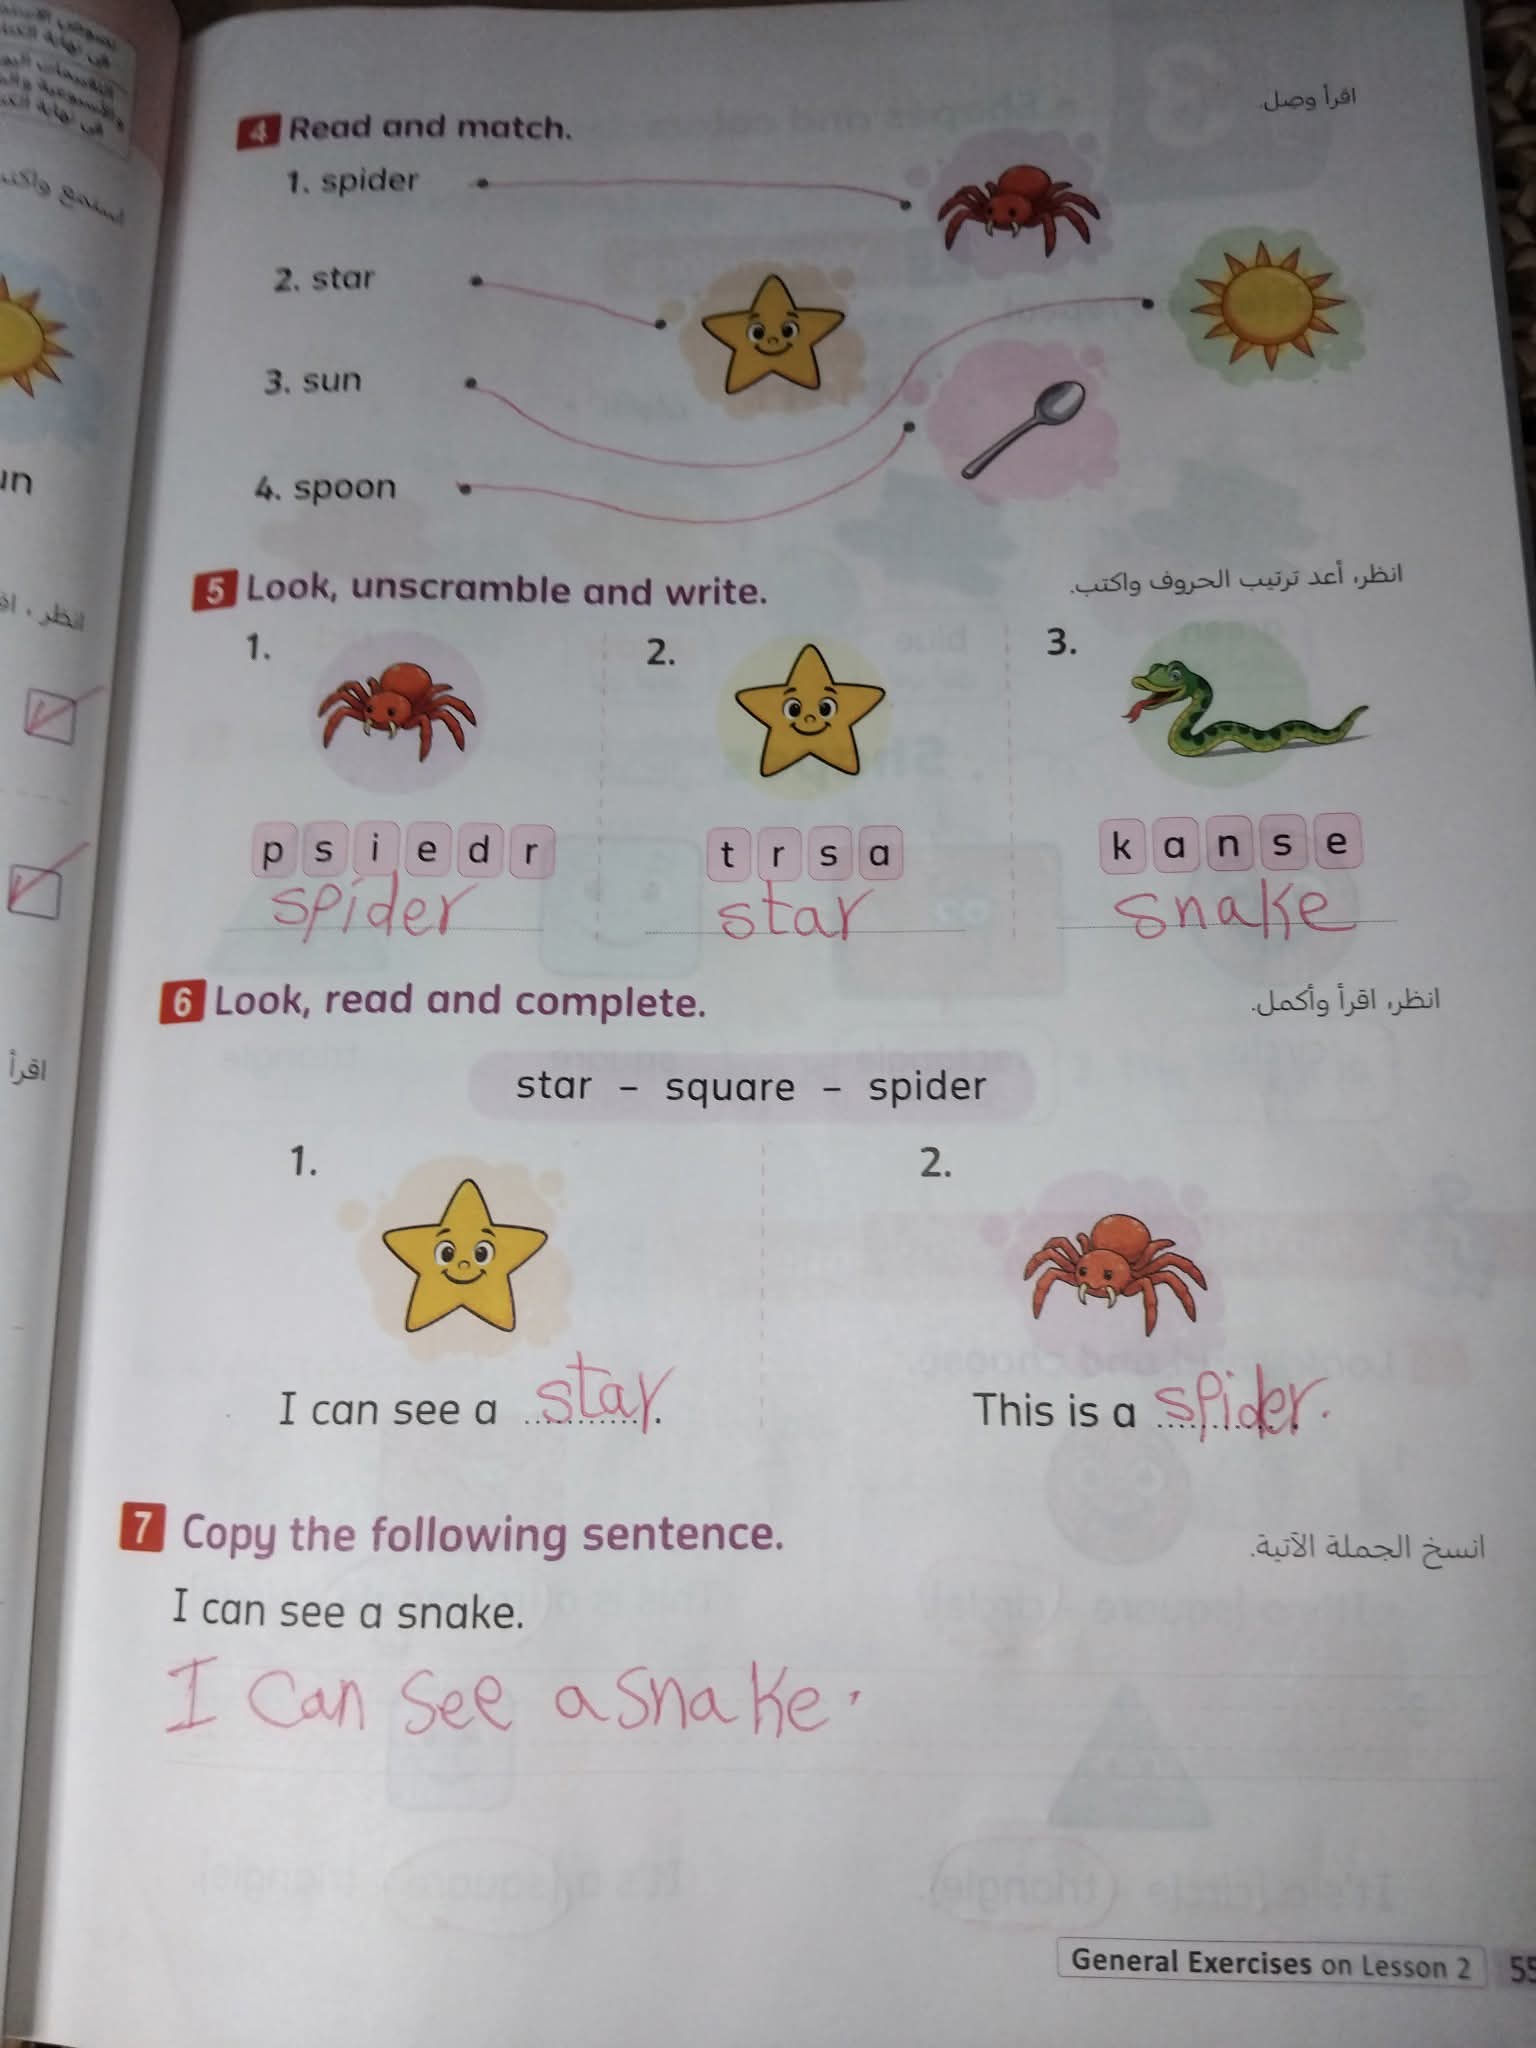 4 Read and match.
اقرأ وصل.
1. spider
2. star
3. sun
4. spoon
5 Look, unscramble and write.
انظر، أعد ترتيب الحروف واكتب.
1.
2.
3.
p s i e d r
t r s a
k a n s e
spider
star
snake
6 Look, read and complete.
انظر، اقرأ وأكمل.
star – square – spider
1.
2.
I can see a star.
This is a spider.
7 Copy the following sentence.
انسخ الجملة الآتية.
I can see a snake.
I can see a snake.
General Exercises on Lesson 2
55